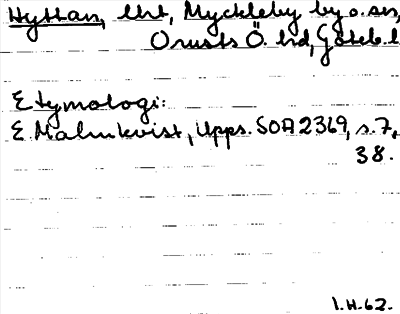 Hyttan, lht, Myckleby by o. sn,
Orusts Ö. hd, Göteb. l
Etymologi:
E. Malmkvist, Upps. SOA 2369, s. 7,
38.
I.H-62.